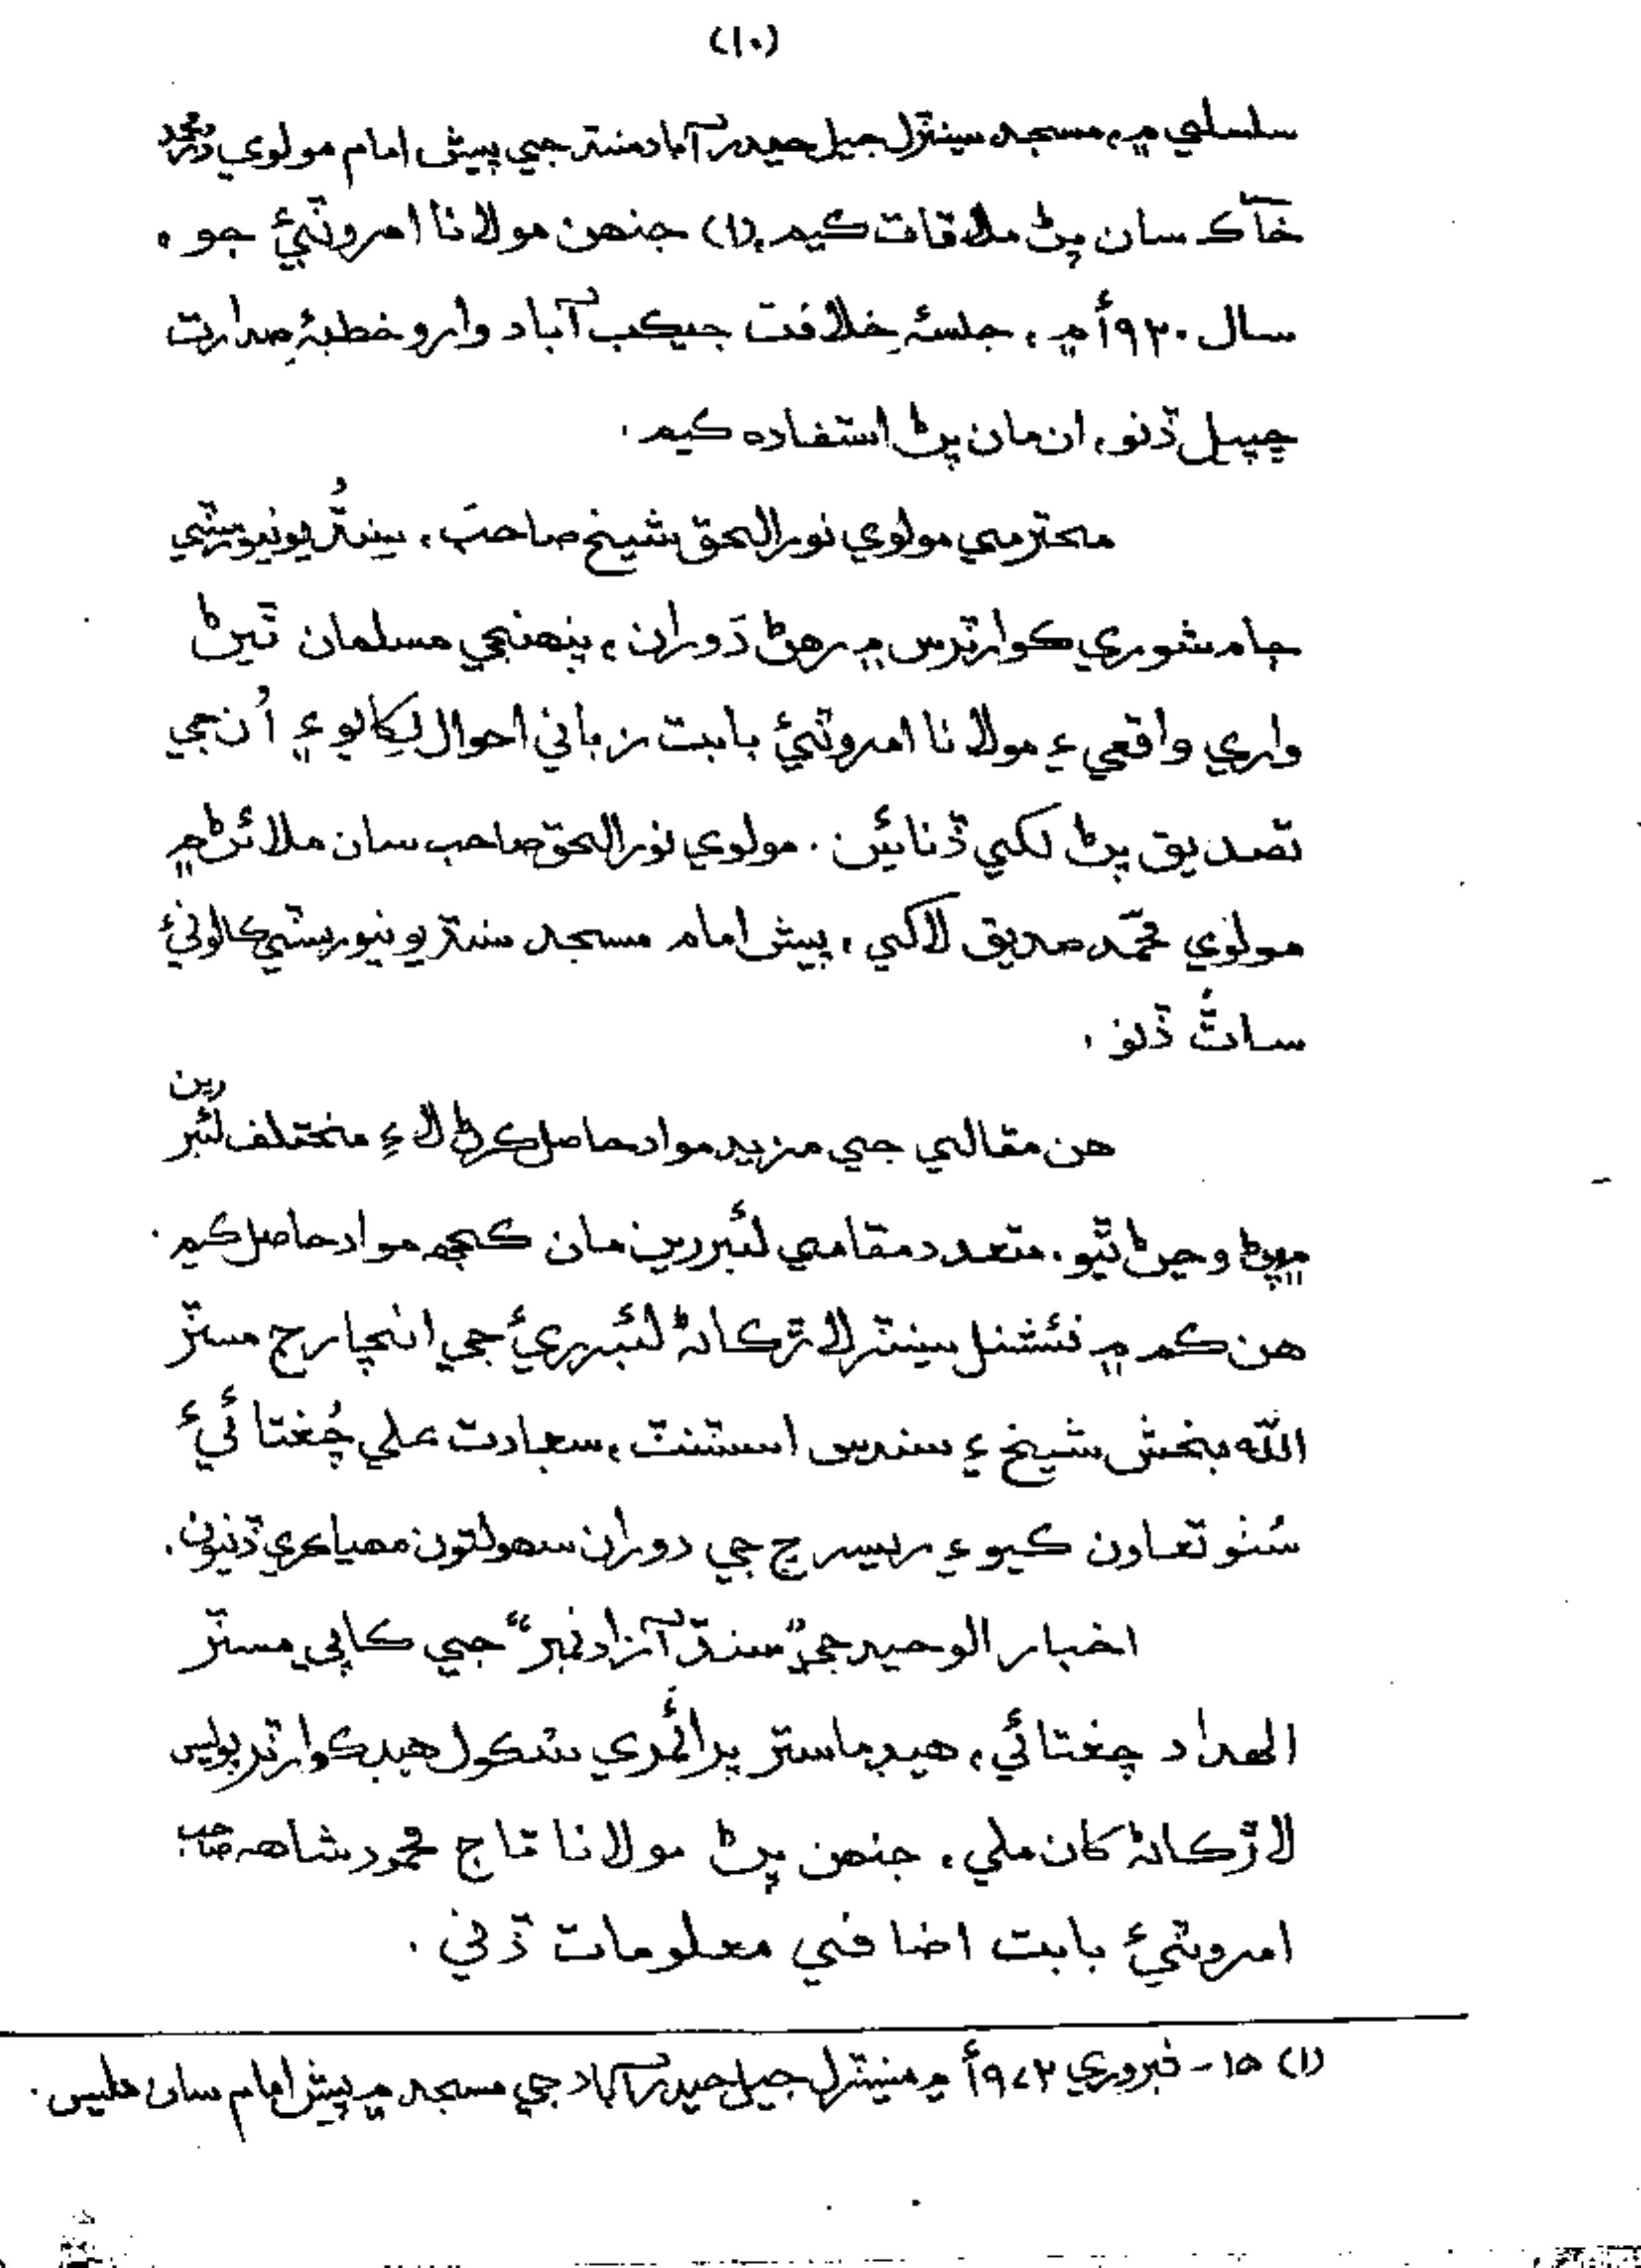 (١٠)
سلسلي ۾، مسجد سينٽرل جيل حيدرآباد سنڌ جي پيش امام مولوي دُر محمد
خاڪ سان پڻ ملاقات ڪيم. (١) جنھن مولانا امروٽيءَ جو،
سال ١٩٢٠ع ۾، جلسۂ خلافت جيڪب آباد وارو خطبۂ صدارت
ڇپيل ڏنو، ان مان پڻ استفادہ ڪيم.
محترمي مولوي نورالحق شيخ صاحب، سنڌ يونيورسٽي
ڄامشوري ڪوارٽرس ۾ رھڻ دوران، پنھنجي مسلمان ٿيڻ
واري واقعي ۽ مولانا امروٽيءَ بابت زباني احوال لکايو ۽ اُن جي
تصديق پڻ لکي ڏنائين. مولوي نورالحق صاحب سان ملائڻ ۾
مولوي محمّد صديق لاکي، پيش امام مسجد سنڌ يونيورسٽي ڪالونيءَ
ساٿُ ڏنو.
ھن مقالي جي مزيد مواد حاصل ڪرڻ لاءِ مختلف لئبررين
۾ پڻ وڃڻ ٿيو. متعدد مقامي لئبررين مان ڪجھہ مواد حاصل ڪيم.
ھن ڪم ۾ نئشنل سينٽر لاڙڪاڻہ لئبرريءَ جي انچارج مسٽر
اللہ بخش شيخ ۽ سندس اسسٽنٽ، سعادت علي چُغتائيءَ
سُٺو تعاون ڪيو ۽ ريسرچ جي دوران سھولتون مھيا ڪري ڏنيون.
اخبار الوحيد جي "سنڌ آزاد نمبر" جي ڪاپي مسٽر
الھداد چغتائي، ھيڊماستر پرائمري سڪول ھيڊڪوارٽر پوليس
لاڙڪاڻہ کان ملي، جنھن پڻ مولانا تاج محمود شاھہ صاحب
امروٽيءَ بابت اضافي معلومات ڏني.
(١) ١٥ - فبروري ١٩٧٢ع ۾ سينٽرل جيل حيدرآباد جي مسجد ۾ پيش امام سان مليس.